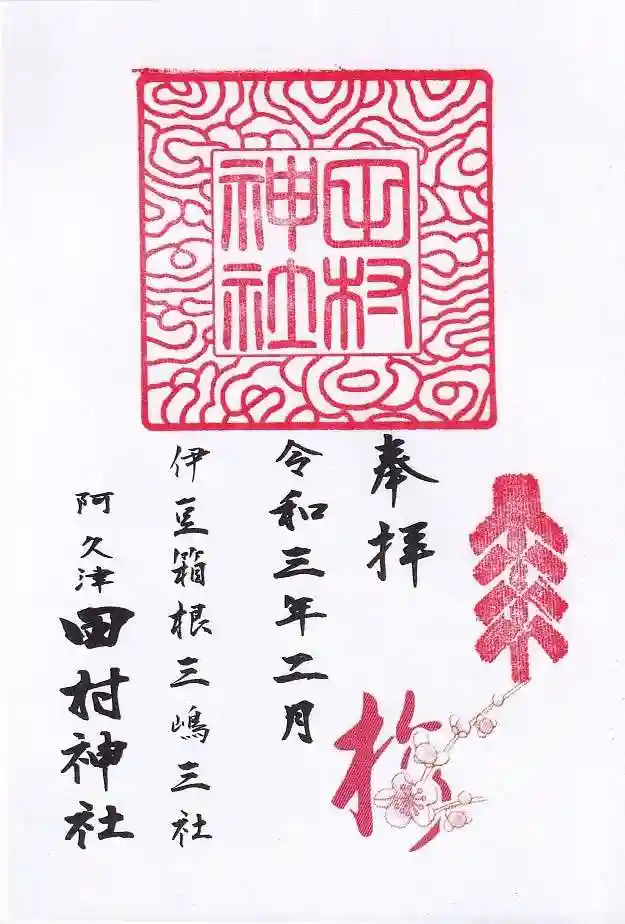 田村
神社
奉拝
梅
令和三年二月
伊豆箱根三嶋三社
阿久津田村神社